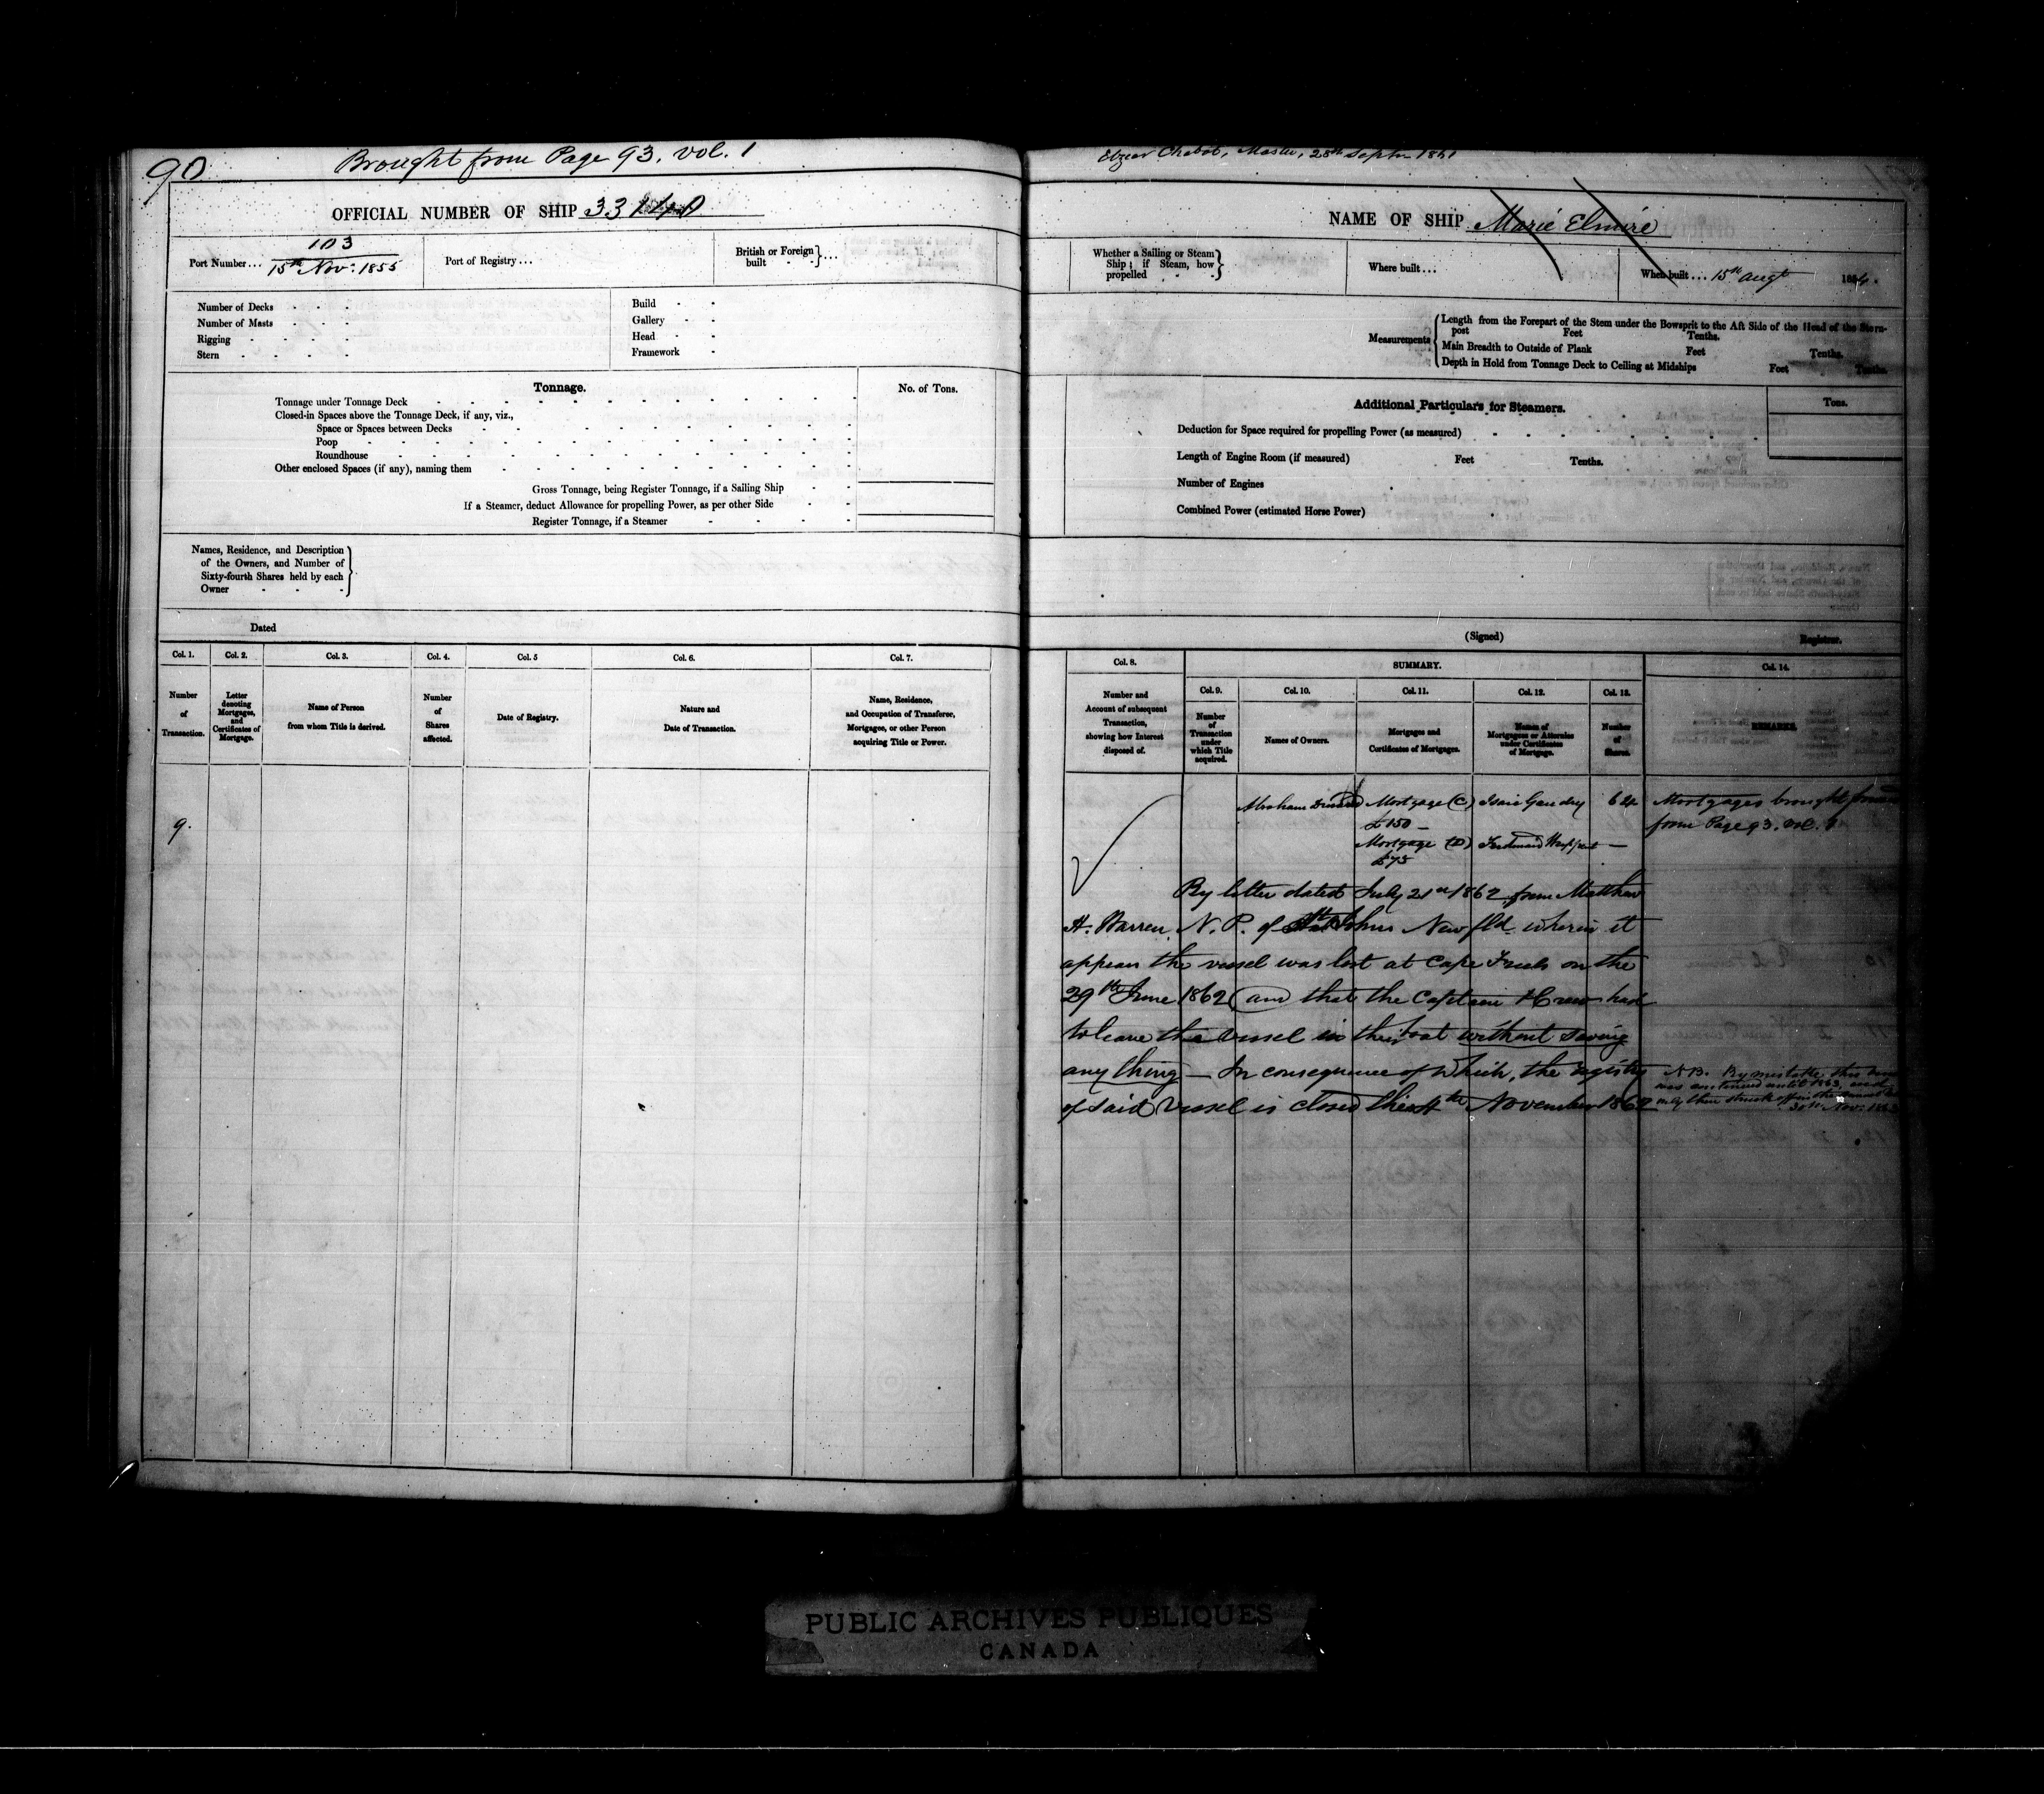 90
Brought from Page 93. Vol. 1
OFFICIAL NUMBER OF SHIP 33140
103
Port Number... 15th Nov: 1855
Port of Registry...
British or Foreign built - - } ...
Number of Decks - - -
Number of Masts - - -
Rigging - - - -
Stern - - - - -
Build - -
Gallery - -
Head - -
Framework -
Tonnage.
No. of Tons.
Tonnage under Tonnage Deck
Closed-in Spaces above the Tonnage Deck, if any, viz.,
Space or Spaces between Decks
Poop
Roundhouse
Other enclosed Spaces (if any), naming them
Gross Tonnage, being Register Tonnage, if a Sailing Ship
If a Steamer, deduct Allowance for propelling Power, as per other Side
Register Tonnage, if a Steamer
Names, Residence, and Description
of the Owners, and Number of
Sixty-fourth Shares held by each
Owner - - -
Dated
Col. 1. Col. 2. Col. 3. Col. 4. Col. 5 Col. 6. Col. 7.
Number of Transaction.
Letter denoting Mortgages, and Certificates of Mortgage.
Name of Person from whom Title is derived.
Number of Shares affected.
Date of Registry.
Nature and Date of Transaction.
Name, Residence, and Occupation of Transferee, Mortgages, or other Person acquiring Title or Power.
9.
Elzear Chabot, Master, 28th Septr 1861
NAME OF SHIP Marie Elmire
Whether a Sailing or Steam
Ship; if Steam, how
propelled - -
Where built...
When built... 15th Augt 185
Measurements
Length from the Forepart of the Stem under the Bowsprit to the Aft Side of the Head of the Stern-
post Feet Tenths.
Main Breadth to Outside of Plank Feet Tenths.
Depth in Hold from Tonnage Deck to Ceiling at Midships Feet Tenths.
Additional Particulars for Steamers.
Tons.
Deduction for Space required for propelling Power (as measured)
Length of Engine Room (if measured) Feet Tenths.
Number of Engines
Combined Power (estimated Horse Power)
(Signed) Registrar.
Col. 8. SUMMARY. Col. 14.
Col. 9. Col. 10. Col. 11. Col. 12. Col. 13.
Number and Account of subsequent Transaction, showing how Interest disposed of.
Number of Transaction under which Title acquired.
Names of Owners.
Mortgages and Certificates of Mortgages.
Names of Mortgagees or Attornies under Certificates of Mortgage.
Number of Shares.
REMARKS.
Abraham Mortgage (C) Isaie Gaudry 64 Mortgages brought forward
£150 - from Page 93. Vol. 1.
Mortgage (D) Ferdinand
£75
By letter dated July 21st 1862 from Matthew
H. Warren, N. P. of St Johns Newfld wherein it
appears the vessel was lost at Cape Freels on the
29th June 1862 and that the Captain & Crew had
to leave the vessel in their boat without saving
any thing - In consequence of which, the registry
of said Vessel is closed this 4th November 1862
N.B. By mistake this
was continued until 1863, and
only then struck off in the
30th Nov: 1863
PUBLIC ARCHIVES PUBLIQUES
CANADA